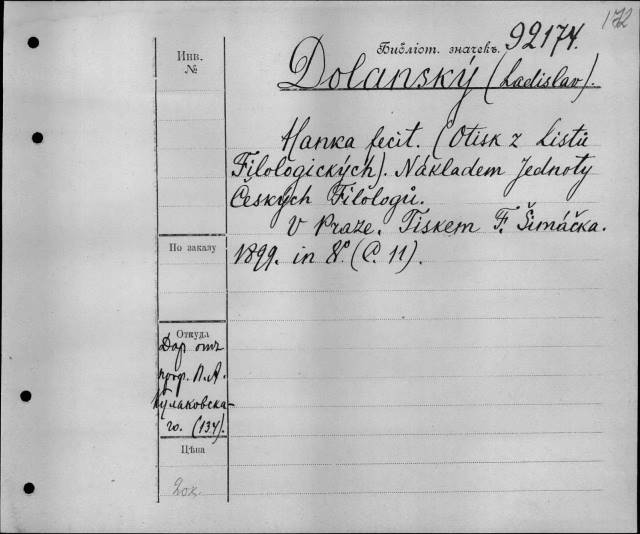 172
Библіот. значекъ. 92174.
Инв.
№
Dolanský (Ladislav).
Hanka fecit. (Otisk z Listů
Filologických). Nákladem Jednoty
Českých Filologů.
V Praze. Tiskem F. Šimáčka.
По заказу
1899. in 8° (C. 11).
Откуда
Даръ отъ
проф. П. А.
Кулаковска-
го. (134).
Цѣна
20к.